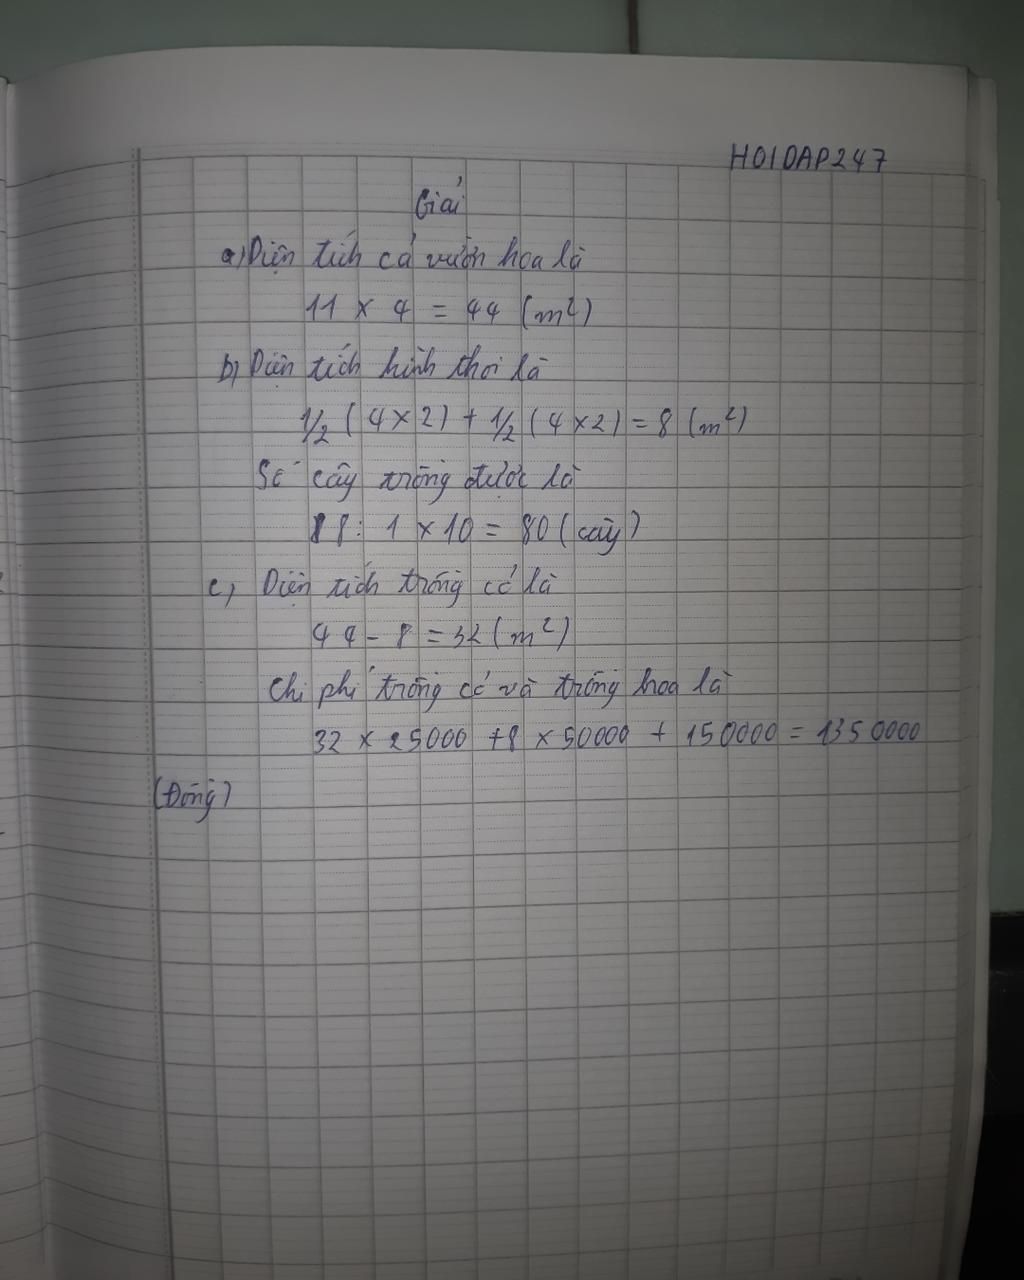 HOIDAP247
Giải
a) Diện tích cả vườn hoa là
11 x 4 = 44 (m²)
b) Diện tích hình thoi là
1/2 ( 4 x 2 ) + 1/2 ( 4 x 2 ) = 8 (m²)
Số cây trồng được là
8 : 1 x 10 = 80 ( cây )
c) Diện tích trồng cỏ là
44 - 8 = 32 ( m² )
Chi phí trồng cỏ và trồng hoa là
32 x 25000 + 8 x 50000 + 150000 = 1350000
(Đồng)